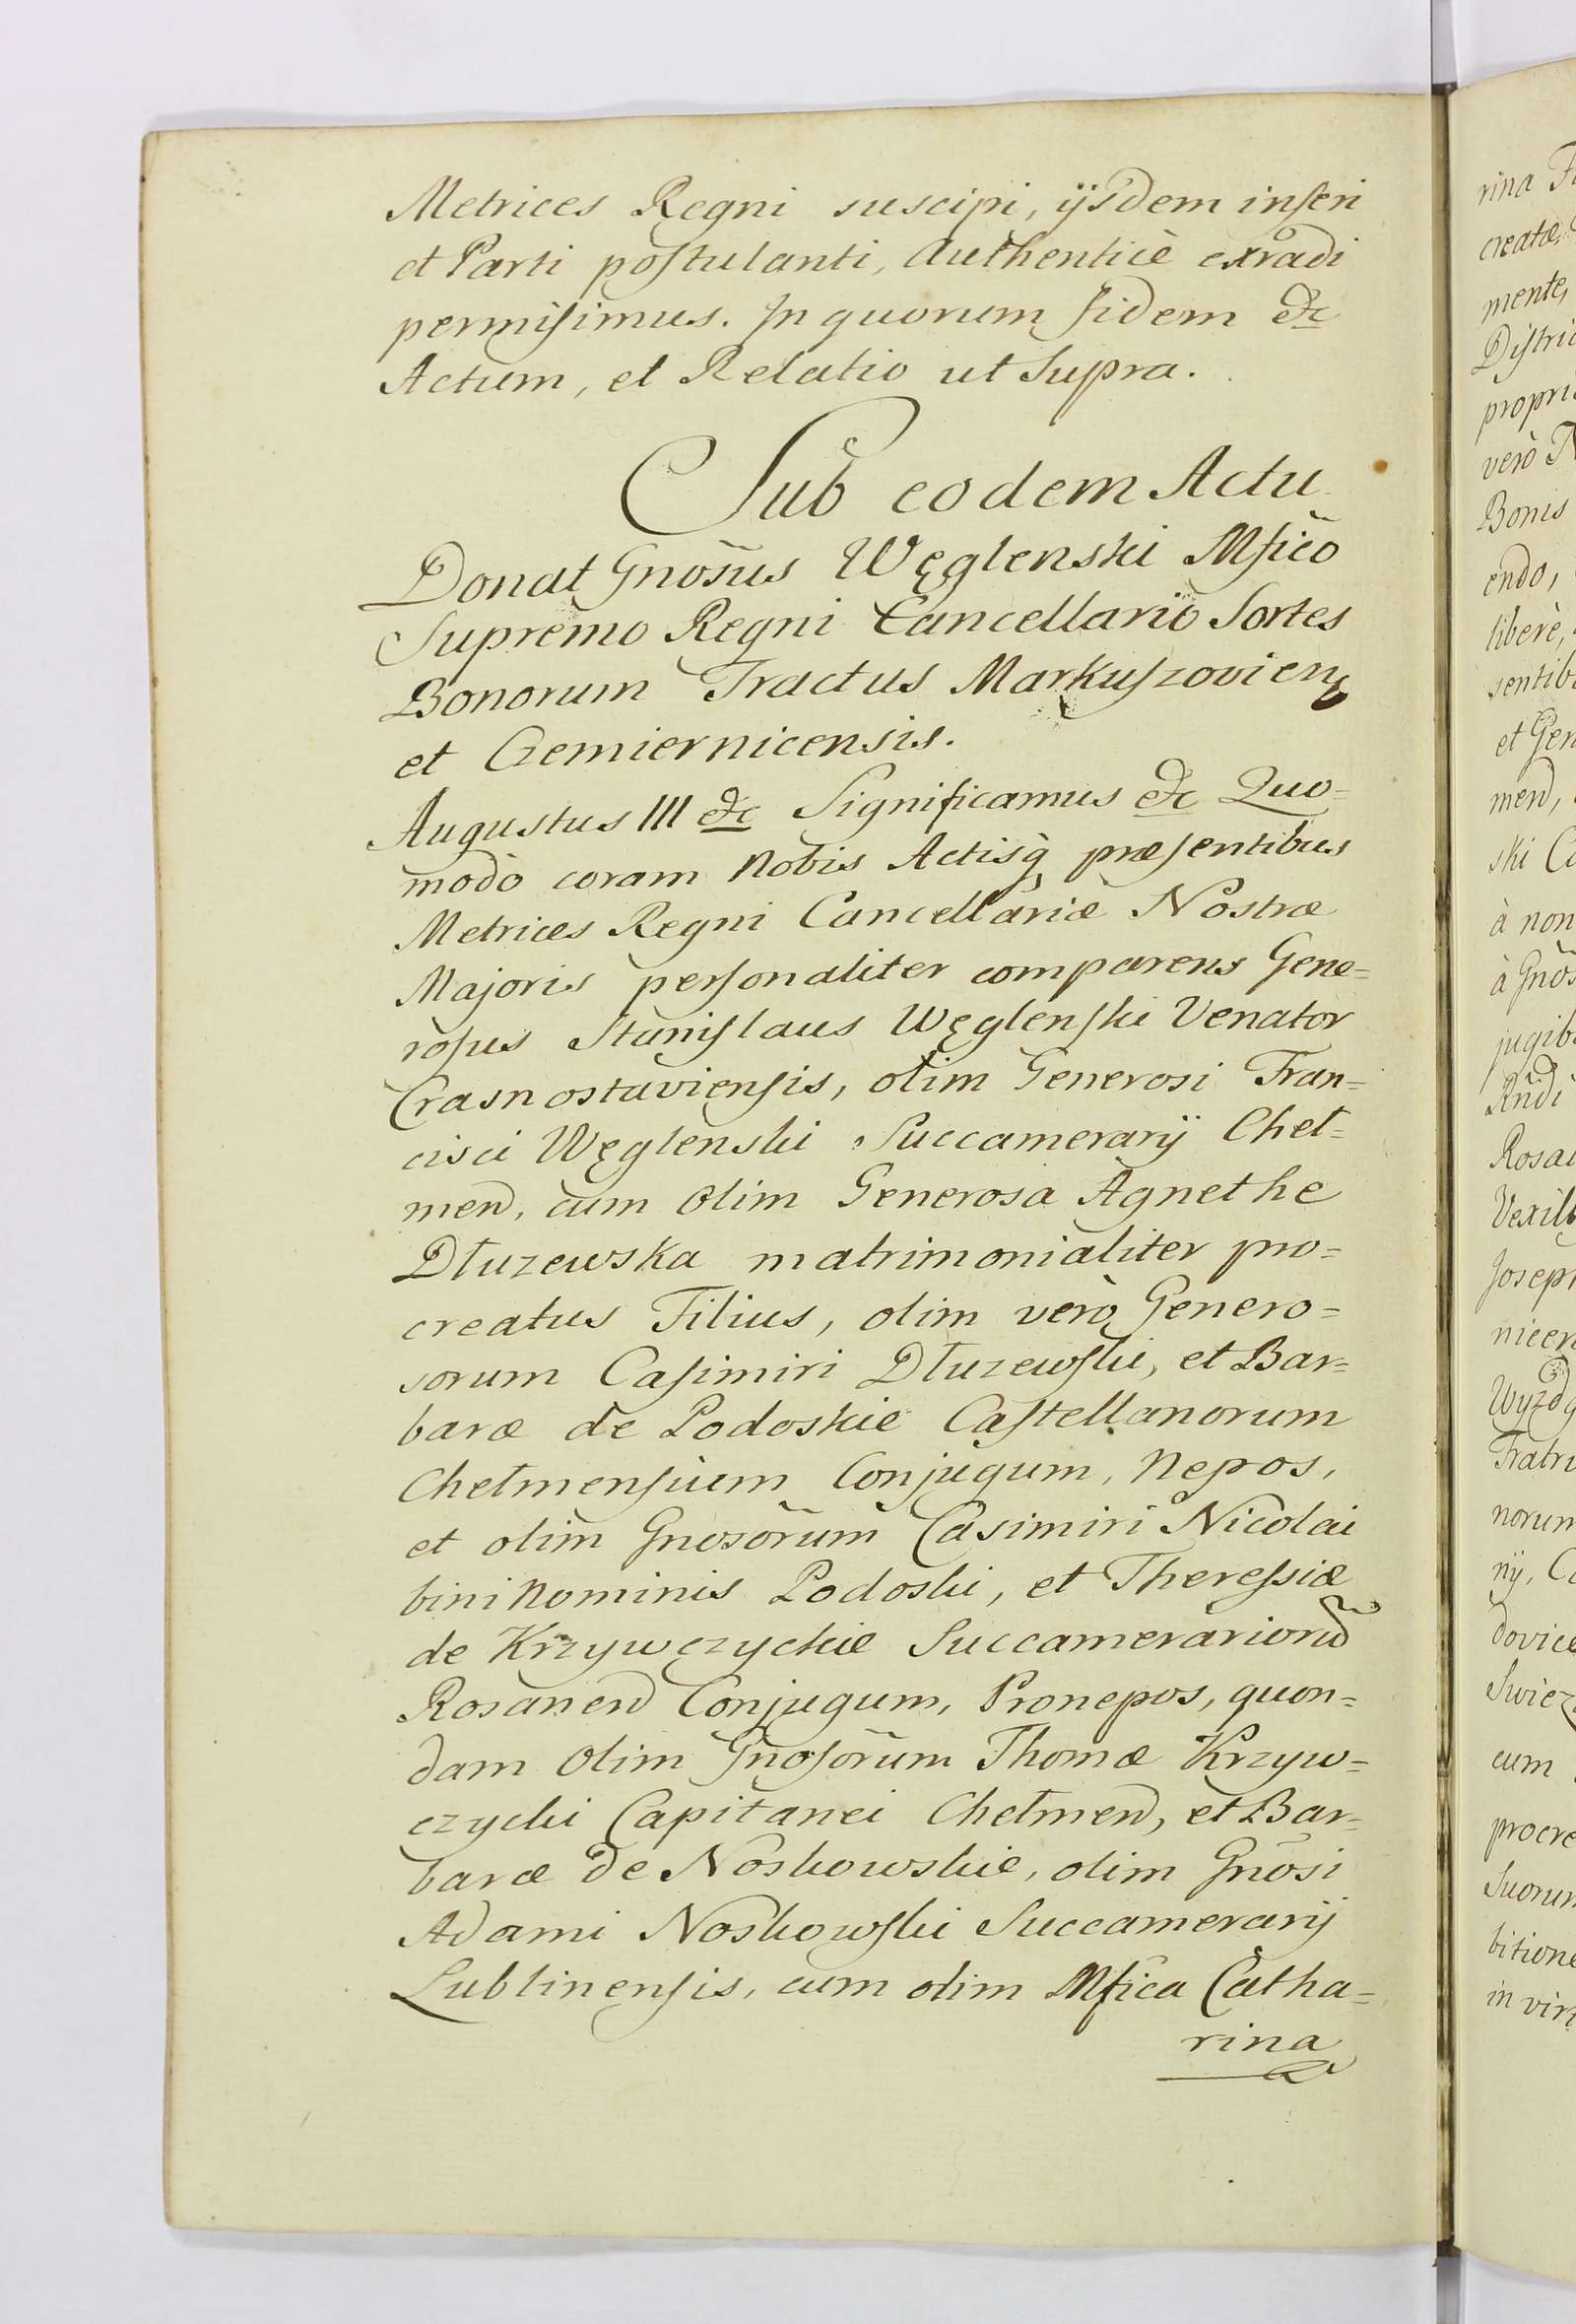 Metrices Regni suscipi, ijsdem inseri
et Parti postulanti, Authenticè extradi
permisimus. In quorum fidem etc
Actum, et Relatio ut Supra.
Sub eodem Actu
Donat Gnõsus Węglenski Mficõ
Supremo Regni Cancellario Sortes
Bonorum Tractus Markuszovien
et Czemiernicensis.
Augustus III etc Significamus etc Quo=
modò coram Nobis Actisq præsentibus
Metrices Regni Cancellariæ Nostræ
Majoris personaliter comparens Gene=
rosus Stanislaus Węglenski Venator
Crasnostaviensis, olim Generosi Fran=
cisci Węglenski Succamerarij Cheł=
men, cum olim Generosa Agnethe
Dłuzewska matrimonialiter pro=
creatus Filius, olim verò Genero=
sorum Casimiri Dłuzewski, et Bar=
baræ de Podoskie Castellanorum
Chełmensium Conjugum, Nepos,
et olim Gnosõrum Casimiri Nicolai
bini Nominis Podoski, et Theressiæ
de Krzywczyckie Succamerariorũ
Rosanen Conjugum, Pronepos, quon=
dam olim Gnosõrum Thomæ Krzyw=
czycki Capitanei Chełmen, et Bar=
baræ de Noskowskie, olim Gnõsi
Adami Noskowski Succamerarij
Lublinensis, cum olim Mfica Catha=
rina
rina
creatæ,
mente,
propri
verò
Bonis
endo,
liberè,
et Gen
men,
ski
à non
à Gnõs
jugib
Rndi
Josep
norun
nij,
cum
procre
Suorum
bitione
in vir